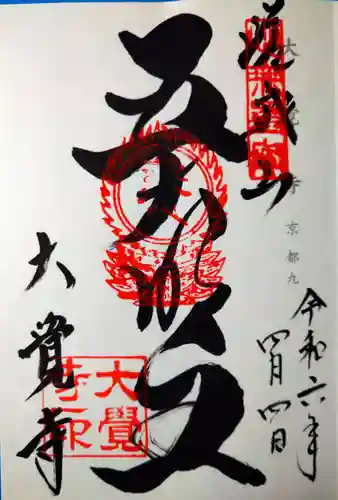 嵯峨山
大覚寺 京都
令和六年
四月四日
五大明王
大覺寺
大覺
寺印